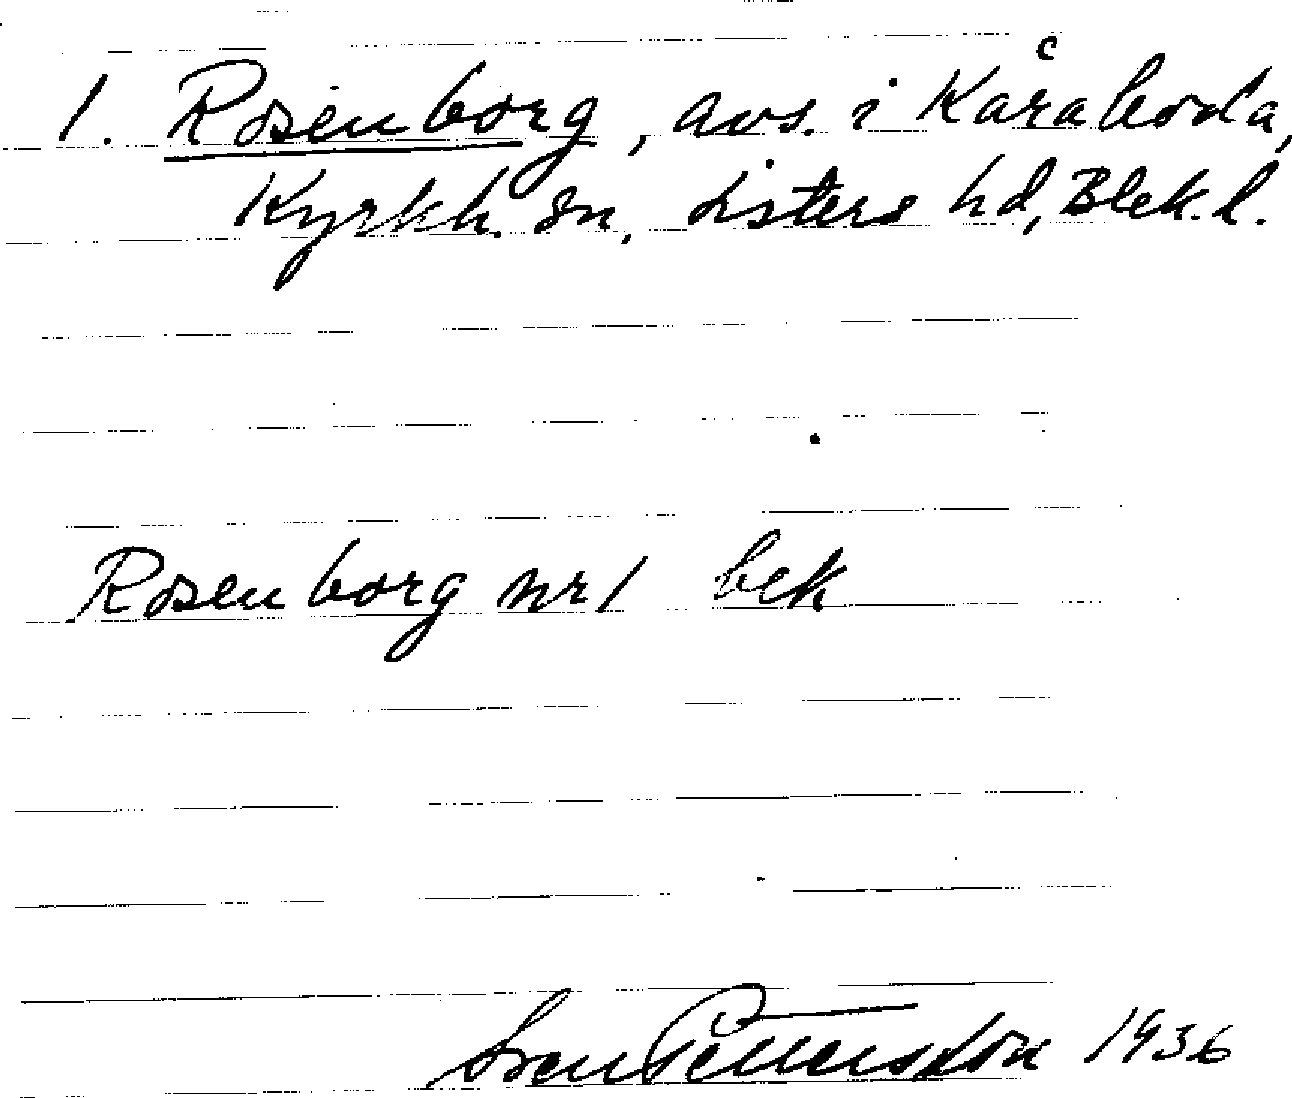 1. Rosenborg, avs. i Kåraboda,
Kyrkh. sn, Listers hd, Blek. l.
Rosenborg nr 1 bek
Sven Pettersson 1936